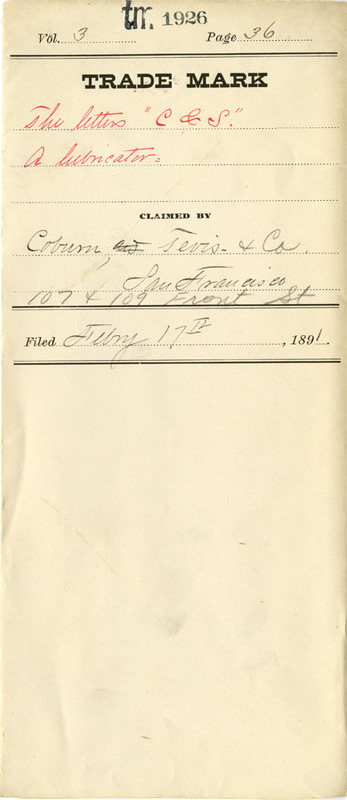 tm. 1926
Vol. 3 Page 36
TRADE MARK
The letters "C & S."
A lubricator=
CLAIMED BY
Coburn, Tevis & Co.
San Francisco
107 & 109 Front St
Filed Febry 17th, 1891.